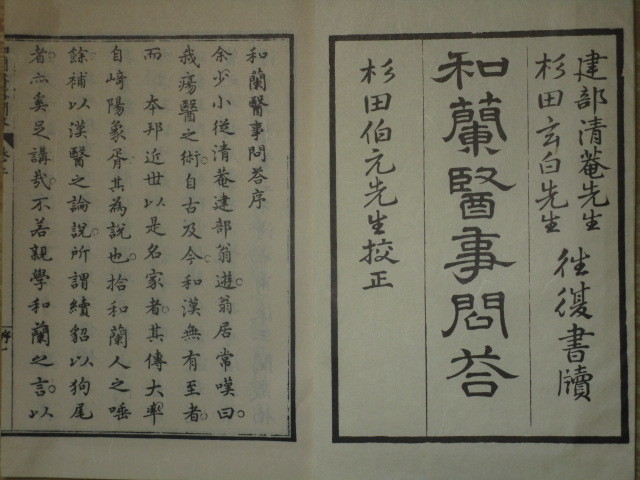 建部清菴先生
杉田玄白先生
往復書牘
和蘭醫事問荅
杉田伯元先生校正
和蘭醫事問荅序
余少小従清菴建部翁遊。翁居常嘆曰。
我瘍醫之術。自古及今。和漢無有至者。
而 本邦近世以是名家者。其傳大率
自崎陽象胥。其為説也。拾和蘭人之唾
餘補以漢醫之論説。所謂續貂以狗尾
者。亦奚足講哉。不若親學和蘭之言。以
序一